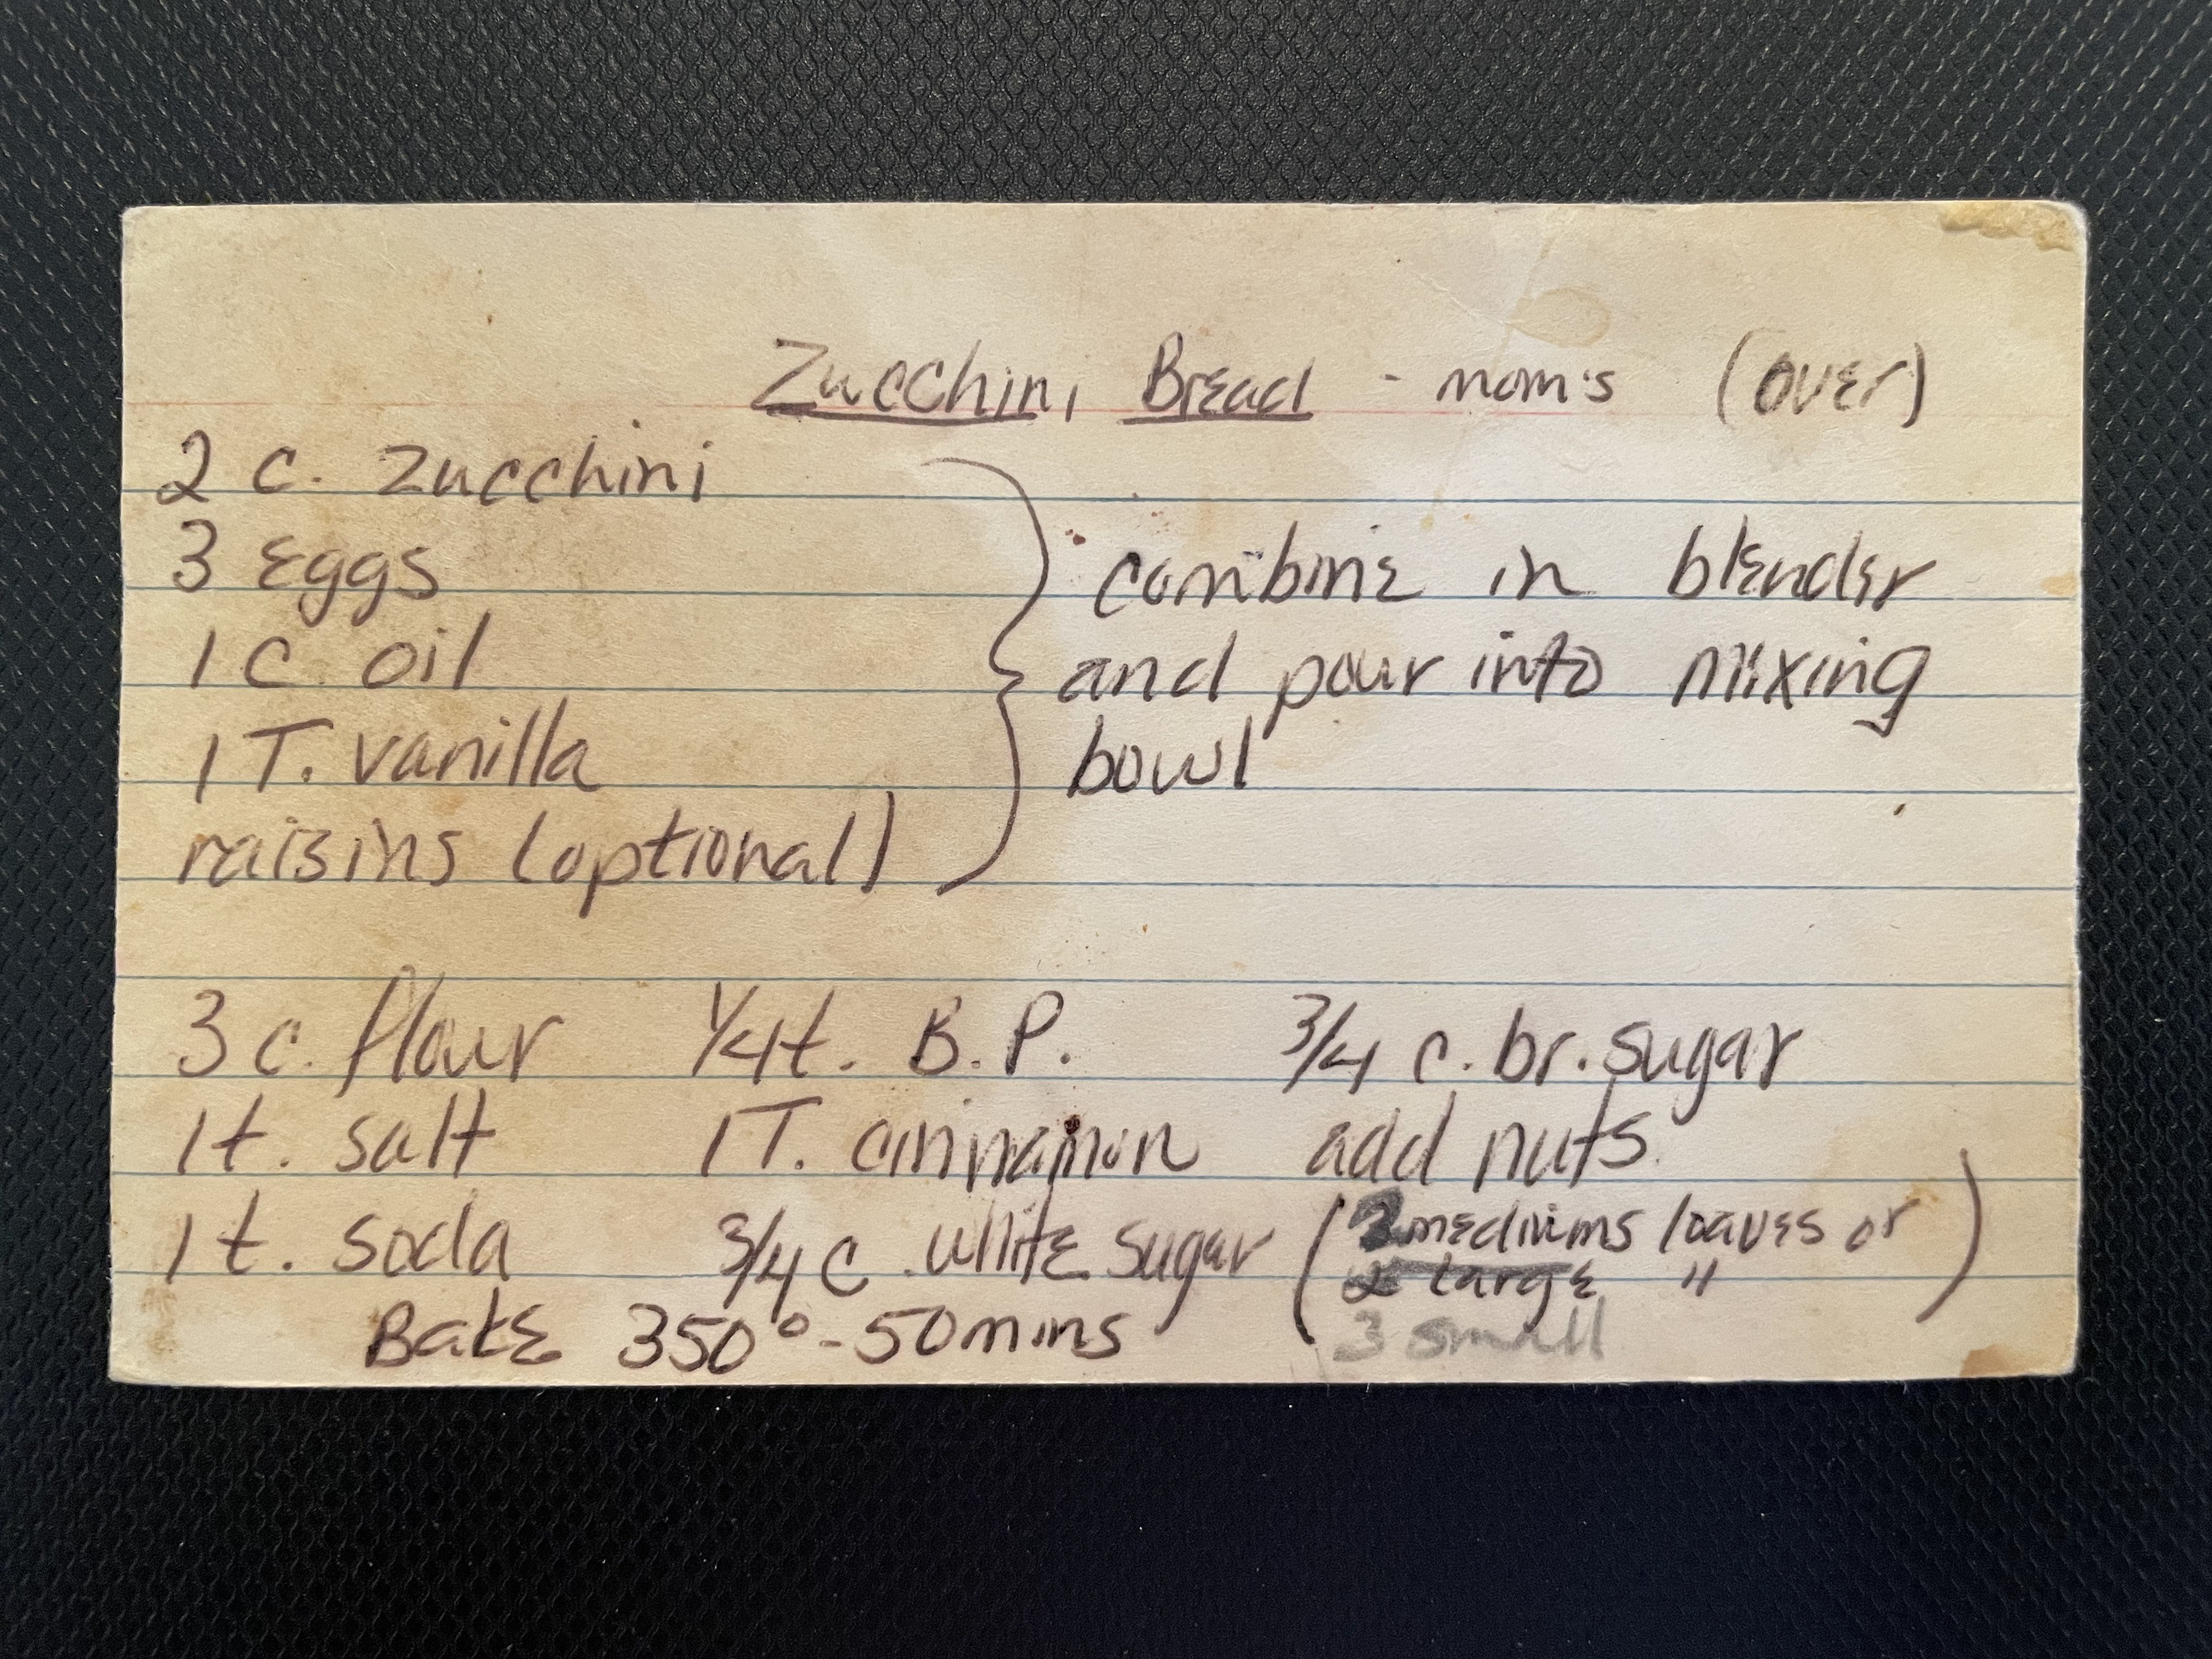 Zucchini Bread - mom's (over)
2 c. zucchini
3 eggs
1 c. oil
1 T. vanilla
raisins (optional)
combine in blender
and pour into mixing
bowl
3 c. flour 1/4 t. B.P. 3/4 c. br. sugar
1 t. salt 1 T. cinnamon add nuts.
1 t. soda 3/4 c. white sugar (mediums loaves or
2 large ")
Bake 350° - 50 mins 3 small